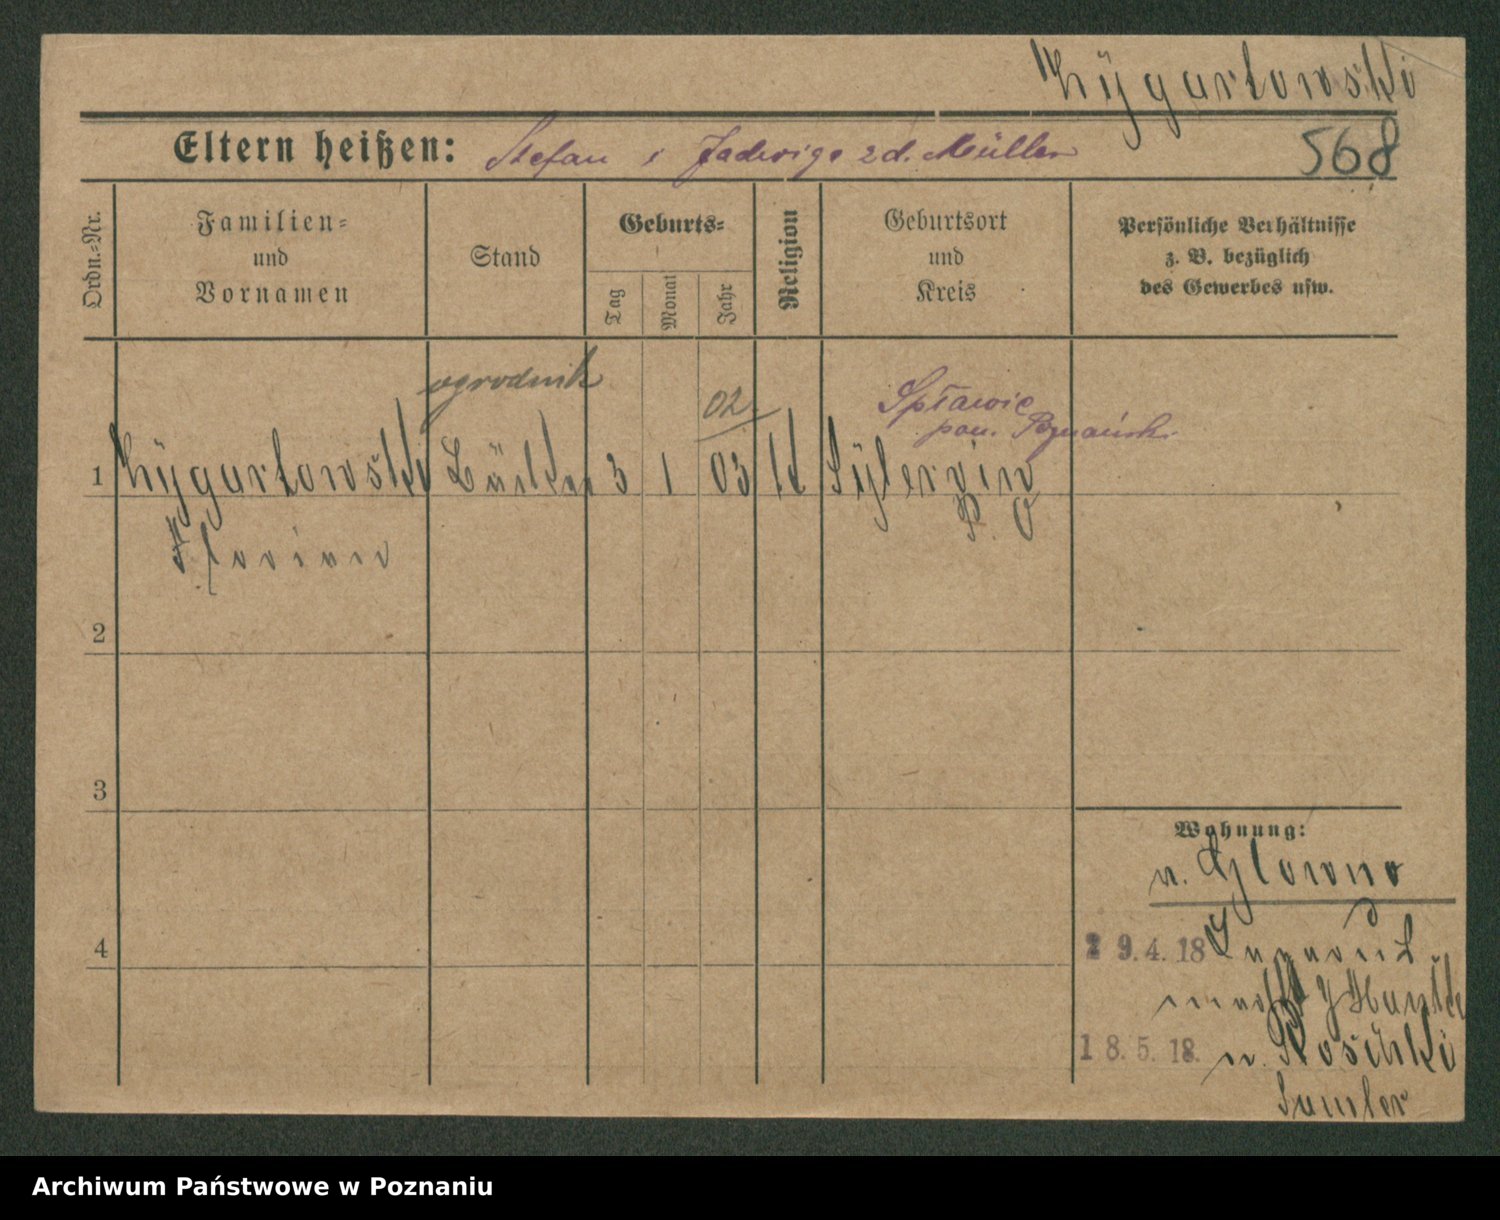 Zÿgarlowski
Eltern heißen: Stefan i Jadwiga zd. Müller 568
Ordn.-Nr.
Familien-
und
Vornamen
Stand
Geburts-
Tag
Monat
Jahr
Religion
Geburtsort
und
Kreis
Persönliche Verhältnisse
z. B. bezüglich
des Gewerbes usw.
ogrodnik
02
Spławie
pow. Poznański
1 Zÿgarlowski 3 1 03 K
P. O
Florian
2
3
4
Wohnung:
n. Glowno
29.4.18
18.5.18. n.
Archiwum Państwowe w Poznaniu